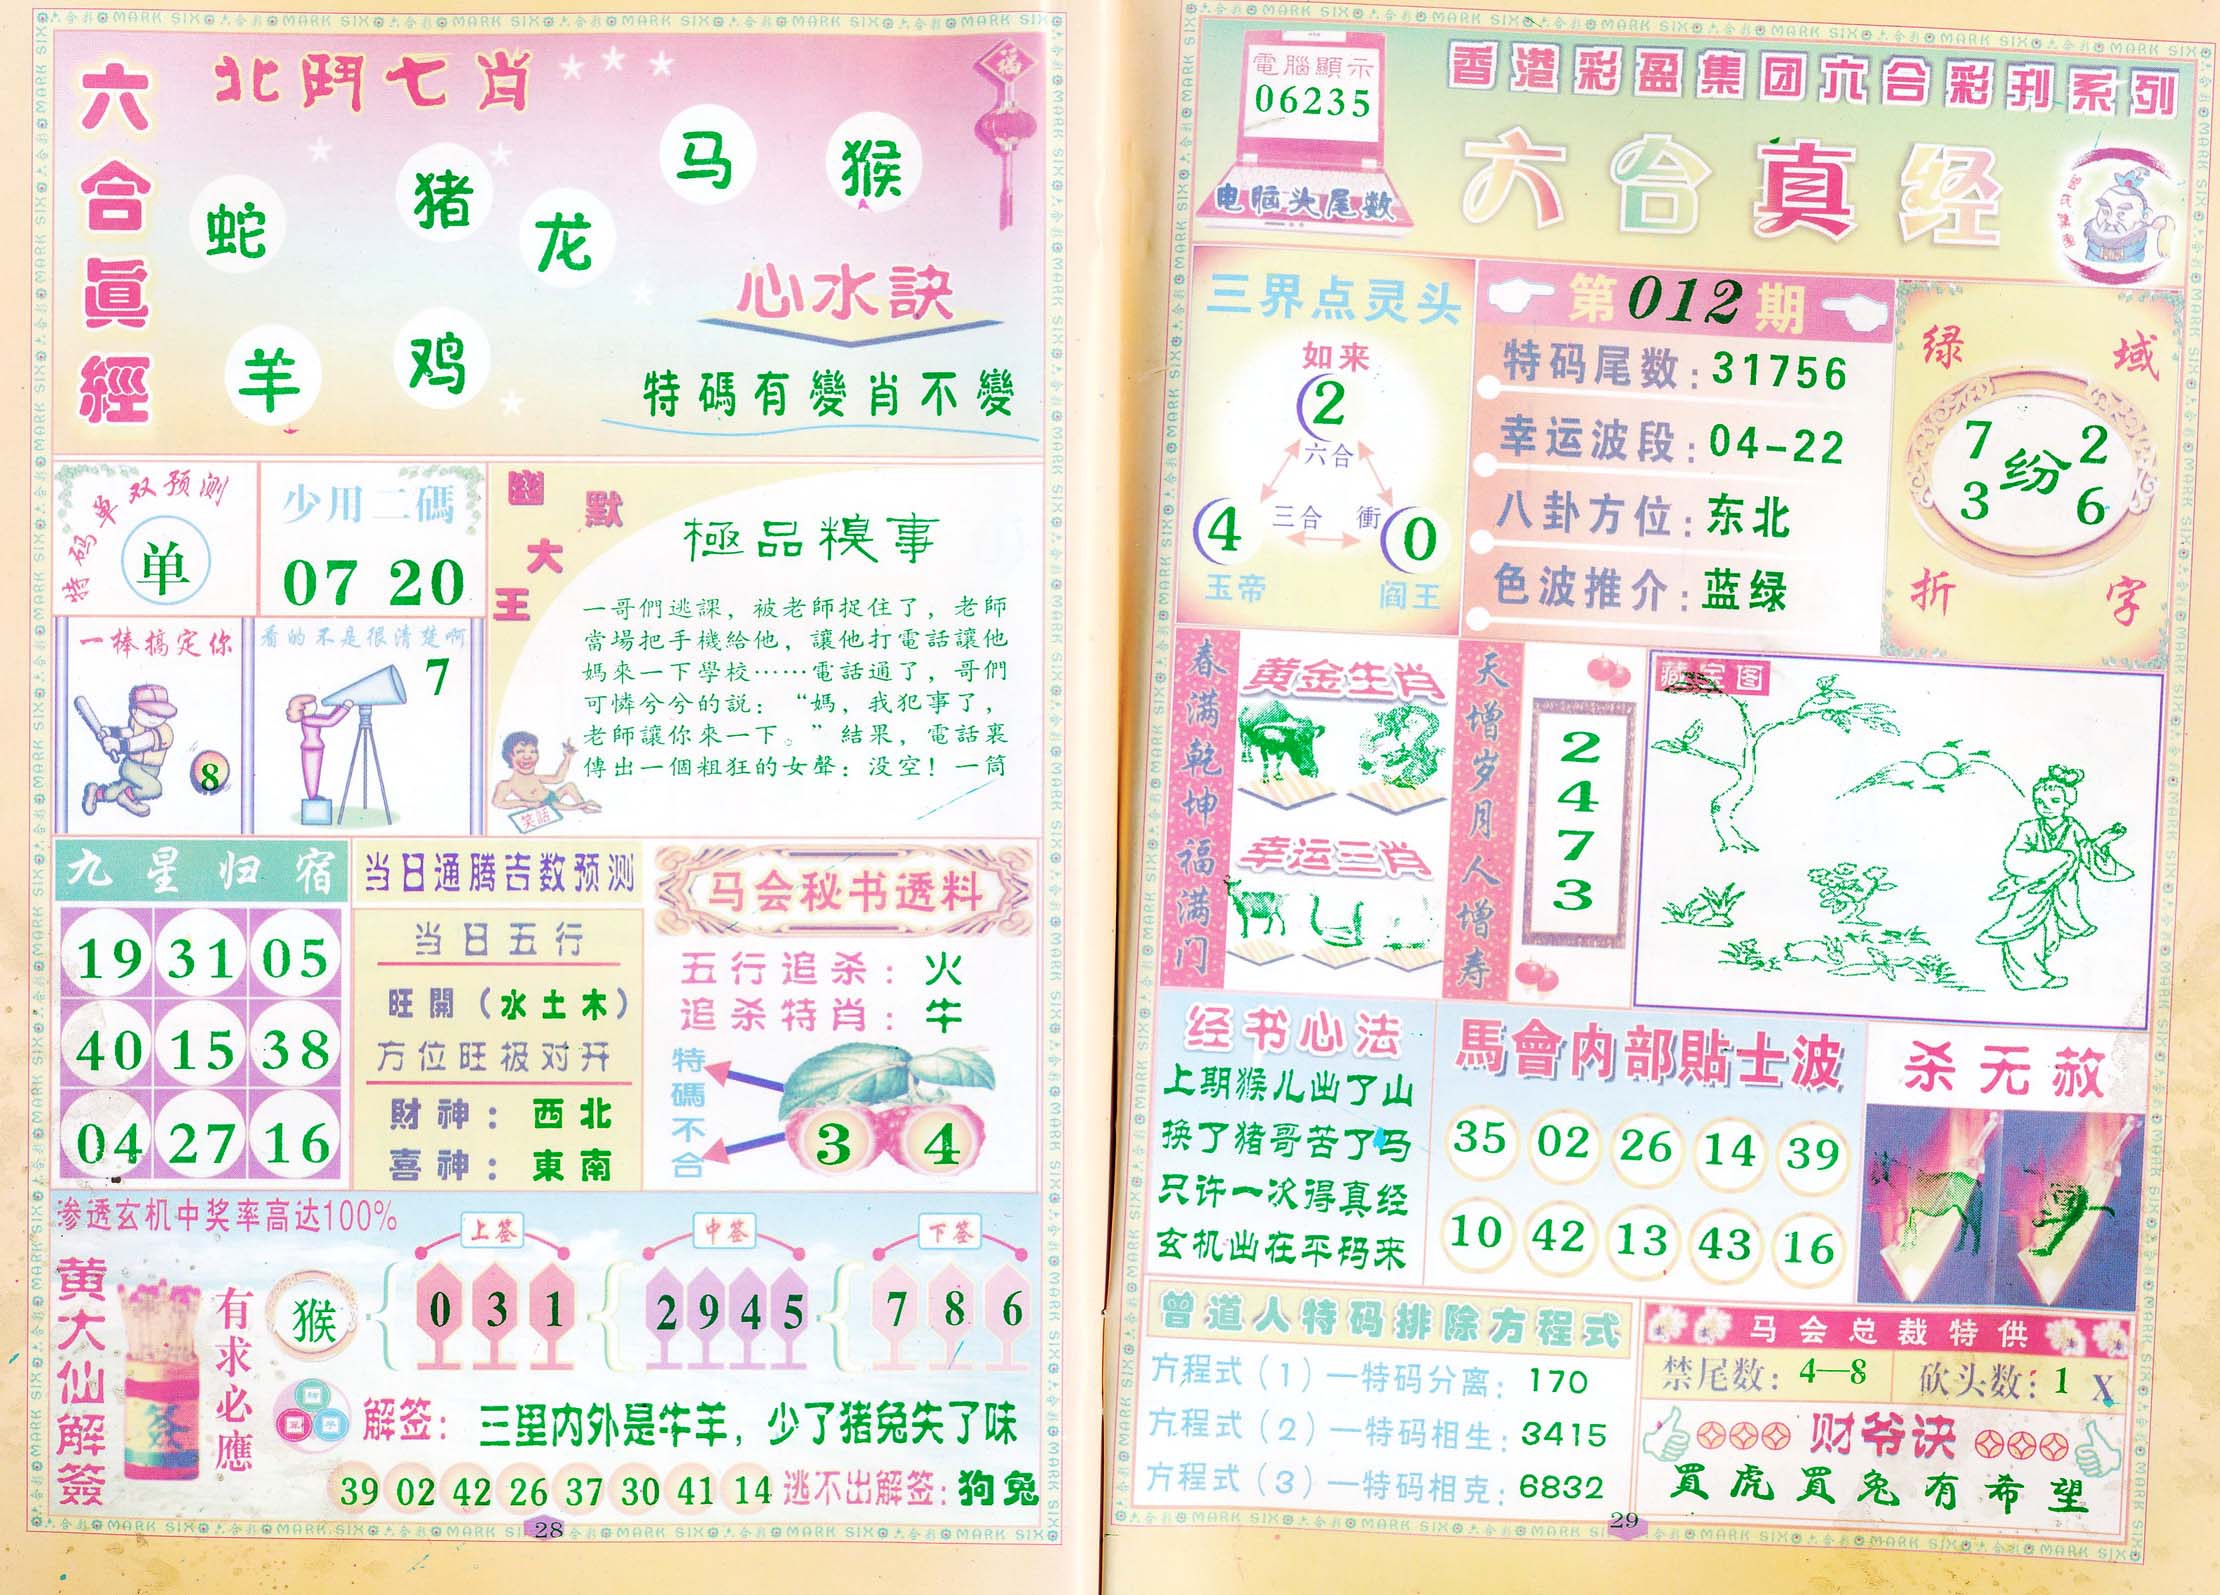 六合真經
北鬥七肖
蛇
猪
龙
马
猴
羊
鸡
福
心水訣
特碼有變肖不變
特码单双预测
单
少用二碼
07 20
一棒搞定你
8
看的不是很清楚啊
7
幽默大王
極品糗事
一哥們逃課，被老師捉住了，老師
當場把手機給他，讓他打電話讓他
媽來一下學校……電話通了，哥們
可憐兮兮的說：“媽，我犯事了，
老師讓你來一下。”結果，電話裏
傳出一個粗狂的女聲：没空！一筒
笑話
九星归宿
19 31 05
40 15 38
04 27 16
当日通腾吉数预测
当日五行
旺開（水土木）
方位旺极对开
財神：西北
喜神：東南
马会秘书透料
五行追杀：火
追杀特肖：牛
特碼不合
3 4
渗透玄机中奖率高达100%
黄大仙解簽
有求必應
猴
上签
0 3 1
中签
2 9 4 5
下签
7 8 6
解签：三里内外是牛羊，少了猪兔失了味
39 02 42 26 37 30 41 14 逃不出解签：狗兔
28
電腦顯示
06235
电脑头尾数
香港彩盈集团六合彩刊系列
六合真经
三界点灵头
如来
2
六合
三合 衝
4
0
玉帝
阎王
第012期
特码尾数：31756
幸运波段：04-22
八卦方位：东北
色波推介：蓝绿
绿域
7 2
纷
3 6
折字
春满乾坤福满门
黄金生肖
幸运三肖
天增岁月人增寿
2473
藏宝图
经书心法
上期猴儿出了山
换了猪哥苦了马
只许一次得真经
玄机出在平码来
馬會内部貼士波
35 02 26 14 39
10 42 13 43 16
杀无赦
曾道人特码排除方程式
方程式（1）—特码分离：170
方程式（2）—特码相生：3415
方程式（3）—特码相克：6832
马会总裁特供
禁尾数：4—8 砍头数：1 X
财爷诀
買虎買兔有希望
29